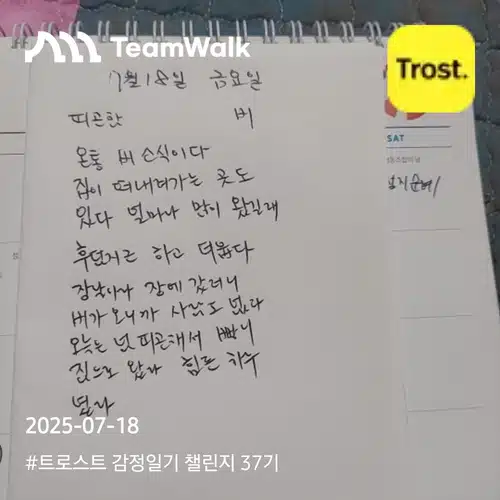 TeamWalk
Trost.
7월 18일 금요일
피곤함 비
온통 비 소식이다
집이 떠내려가는 곳도
있다 얼마나 많이 왔길래
후덥지근 하고 더웁다
장날이라 장에 갔더니
비가 오니까 사람도 없다
오늘은 넘 피곤해서 빠니
집으로 왔다 힘든 하루
였다
SAT
2025-07-18
#트로스트 감정일기 챌린지 37기